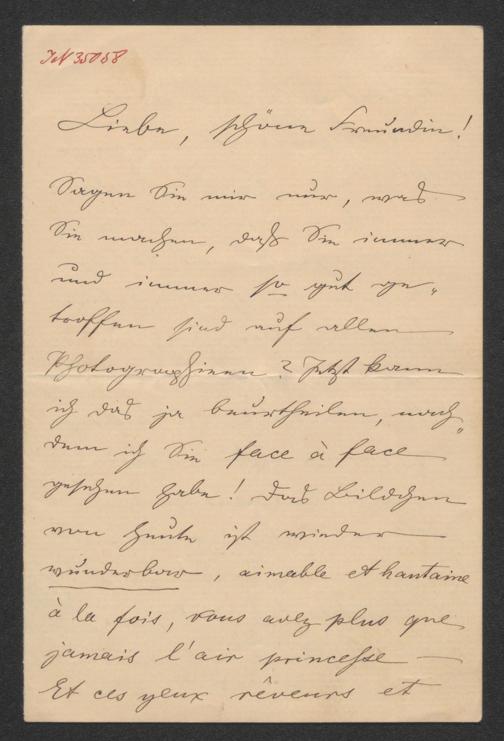 JN 35058
Liebe, schöne Freundin!
Sagen Sie mir nur, was
Sie machen, daß Sie immer
und immer so gut ge-
troffen sind auf allen
Photographieen? Jetzt kann
ich das ja beurtheilen, nach-
dem ich Sie face à face
gesehen habe! Das Bildchen
von heute ist wieder
wunderbar, aimable et hautaine
à la fois, vous avez plus que
jamais l'air princesse —
Et ces yeux rêveurs et